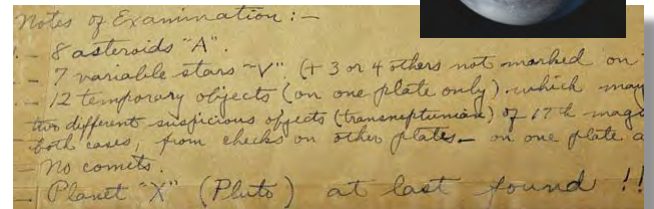 Notes of Examination:-
- 8 asteroids "A".
- 7 variable stars "V". (+ 3 or 4 others not marked on
- 12 temporary objects (on one plate only) which may
two different suspicious objects (transneptunian) of 17th mag
both cases, from checks on other plates - on one plate
- No comets.
- Planet "X" (Pluto) at last found !!